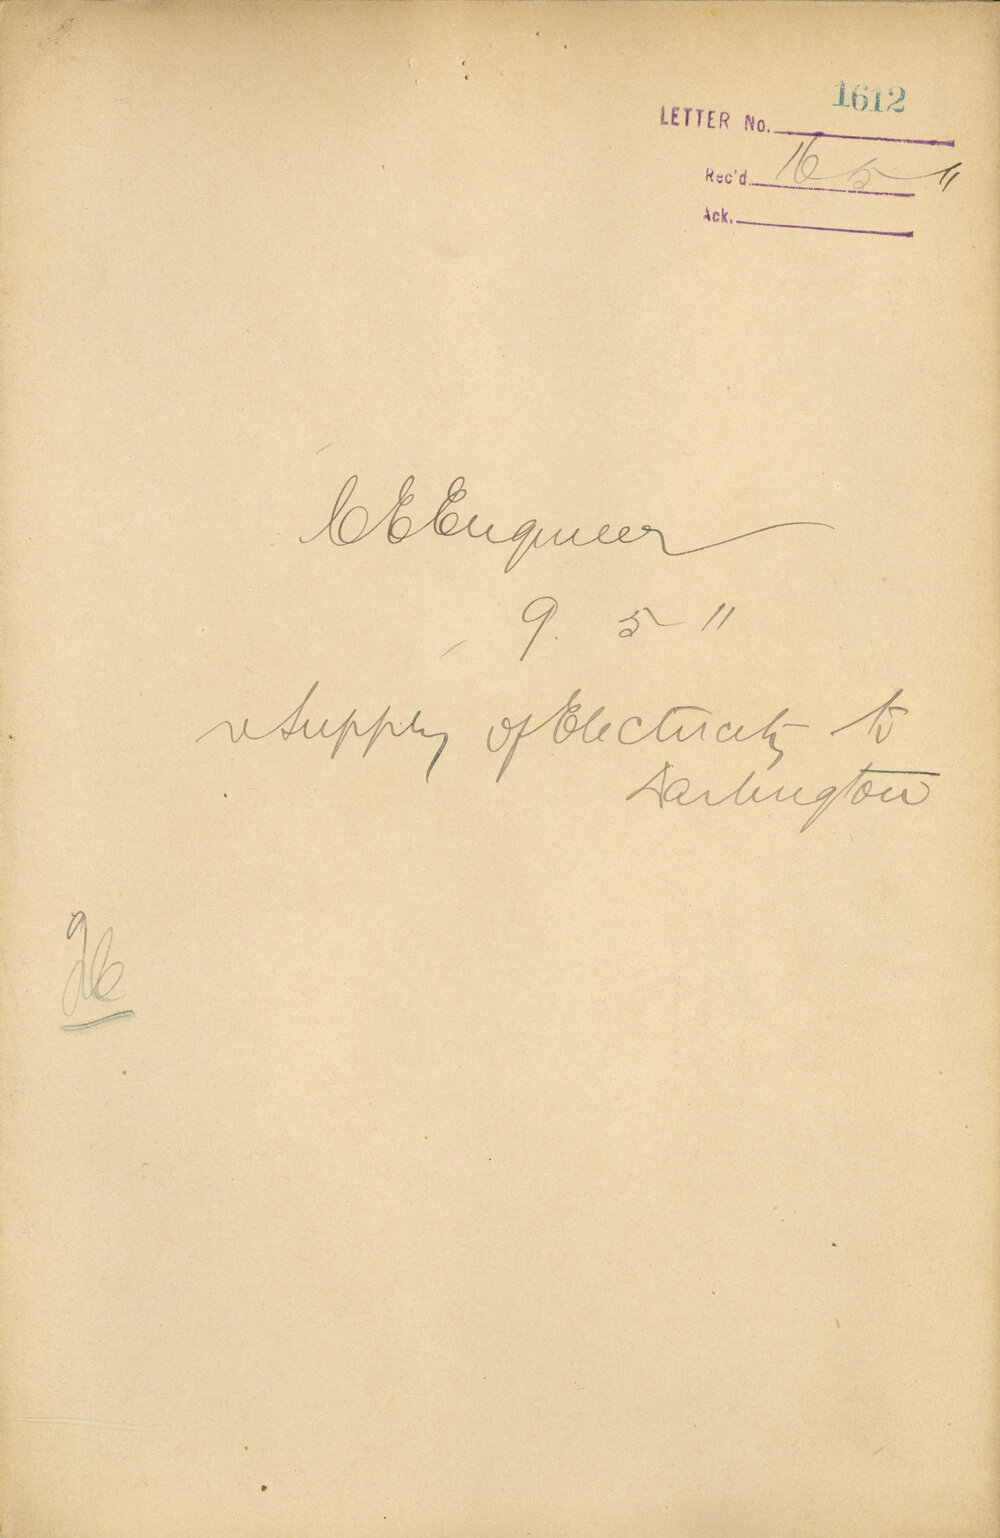 1612
LETTER No.
Rec'd 16 5 11
Ack.
C E Engineer
9. 5 11
r Supply of Electricity to
Darlington